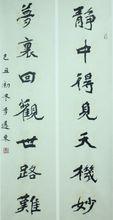 靜中得見天機妙
夢裏回觀世路難
己丑初冬李遠東